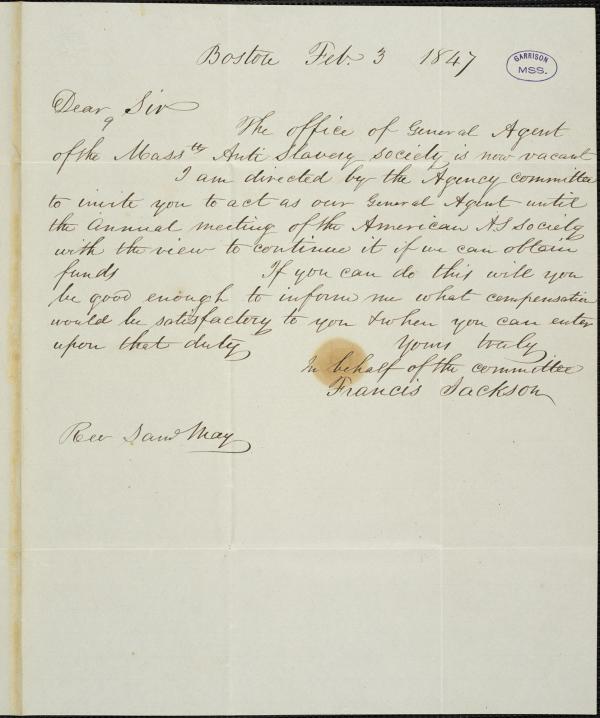 Boston Feb. 3 1847
GARRISON
MSS.
Dear Sir
The office of General Agent
of the Masstts Anti Slavery society is now vacant
I am directed by the Agency committee
to invite you to act as our General Agent until
the annual meeting of the American AS society
with the view to continue it if we can obtain
funds If you can do this will you
be good enough to inform me what compensation
would be satisfactory to you & when you can enter
upon that duty Yours truly
In behalf of the committee
Francis Jackson
Rev Saml May